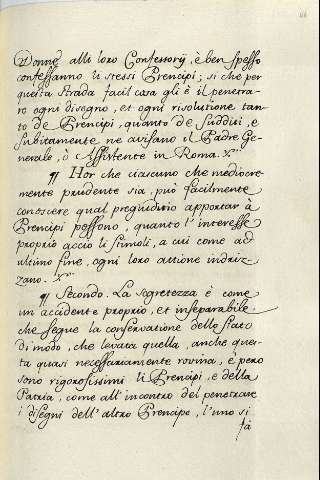 Donne alli loro Confessorij, è ben spesso
confessanno li stessi Prencipi; si che per
questa strada facil cosa gli è il penetra-
re ogni disegno, et ogni risolutione tan-
to de Prencipi, quanto de Sudditi, e
subitamente ne avisano il Padre Ge-
nerale, ò Assistente in Roma.
¶ Hor che ciascuno che mediocre-
mente prudente sia, può facilmente
conoscere qual pregiuditio apportar à
Prencipi possono, quanto l'interesse
proprio accio li stimoli, a cui come ad
ultimo fine, ogni loro attione indriz-
zano.
¶ Secondo. La segretezza è come
un accidente proprio, et inseparabile
che segue la conservatione dello stato
di modo, che levata quella, anche ques-
ta quasi necessariamente rovina, è però
sono rigorosissimi li Prencipi, e della
Patria, come all'incontro del penetrare
i disegni dell'altro Prencipe, l'uno si
fà